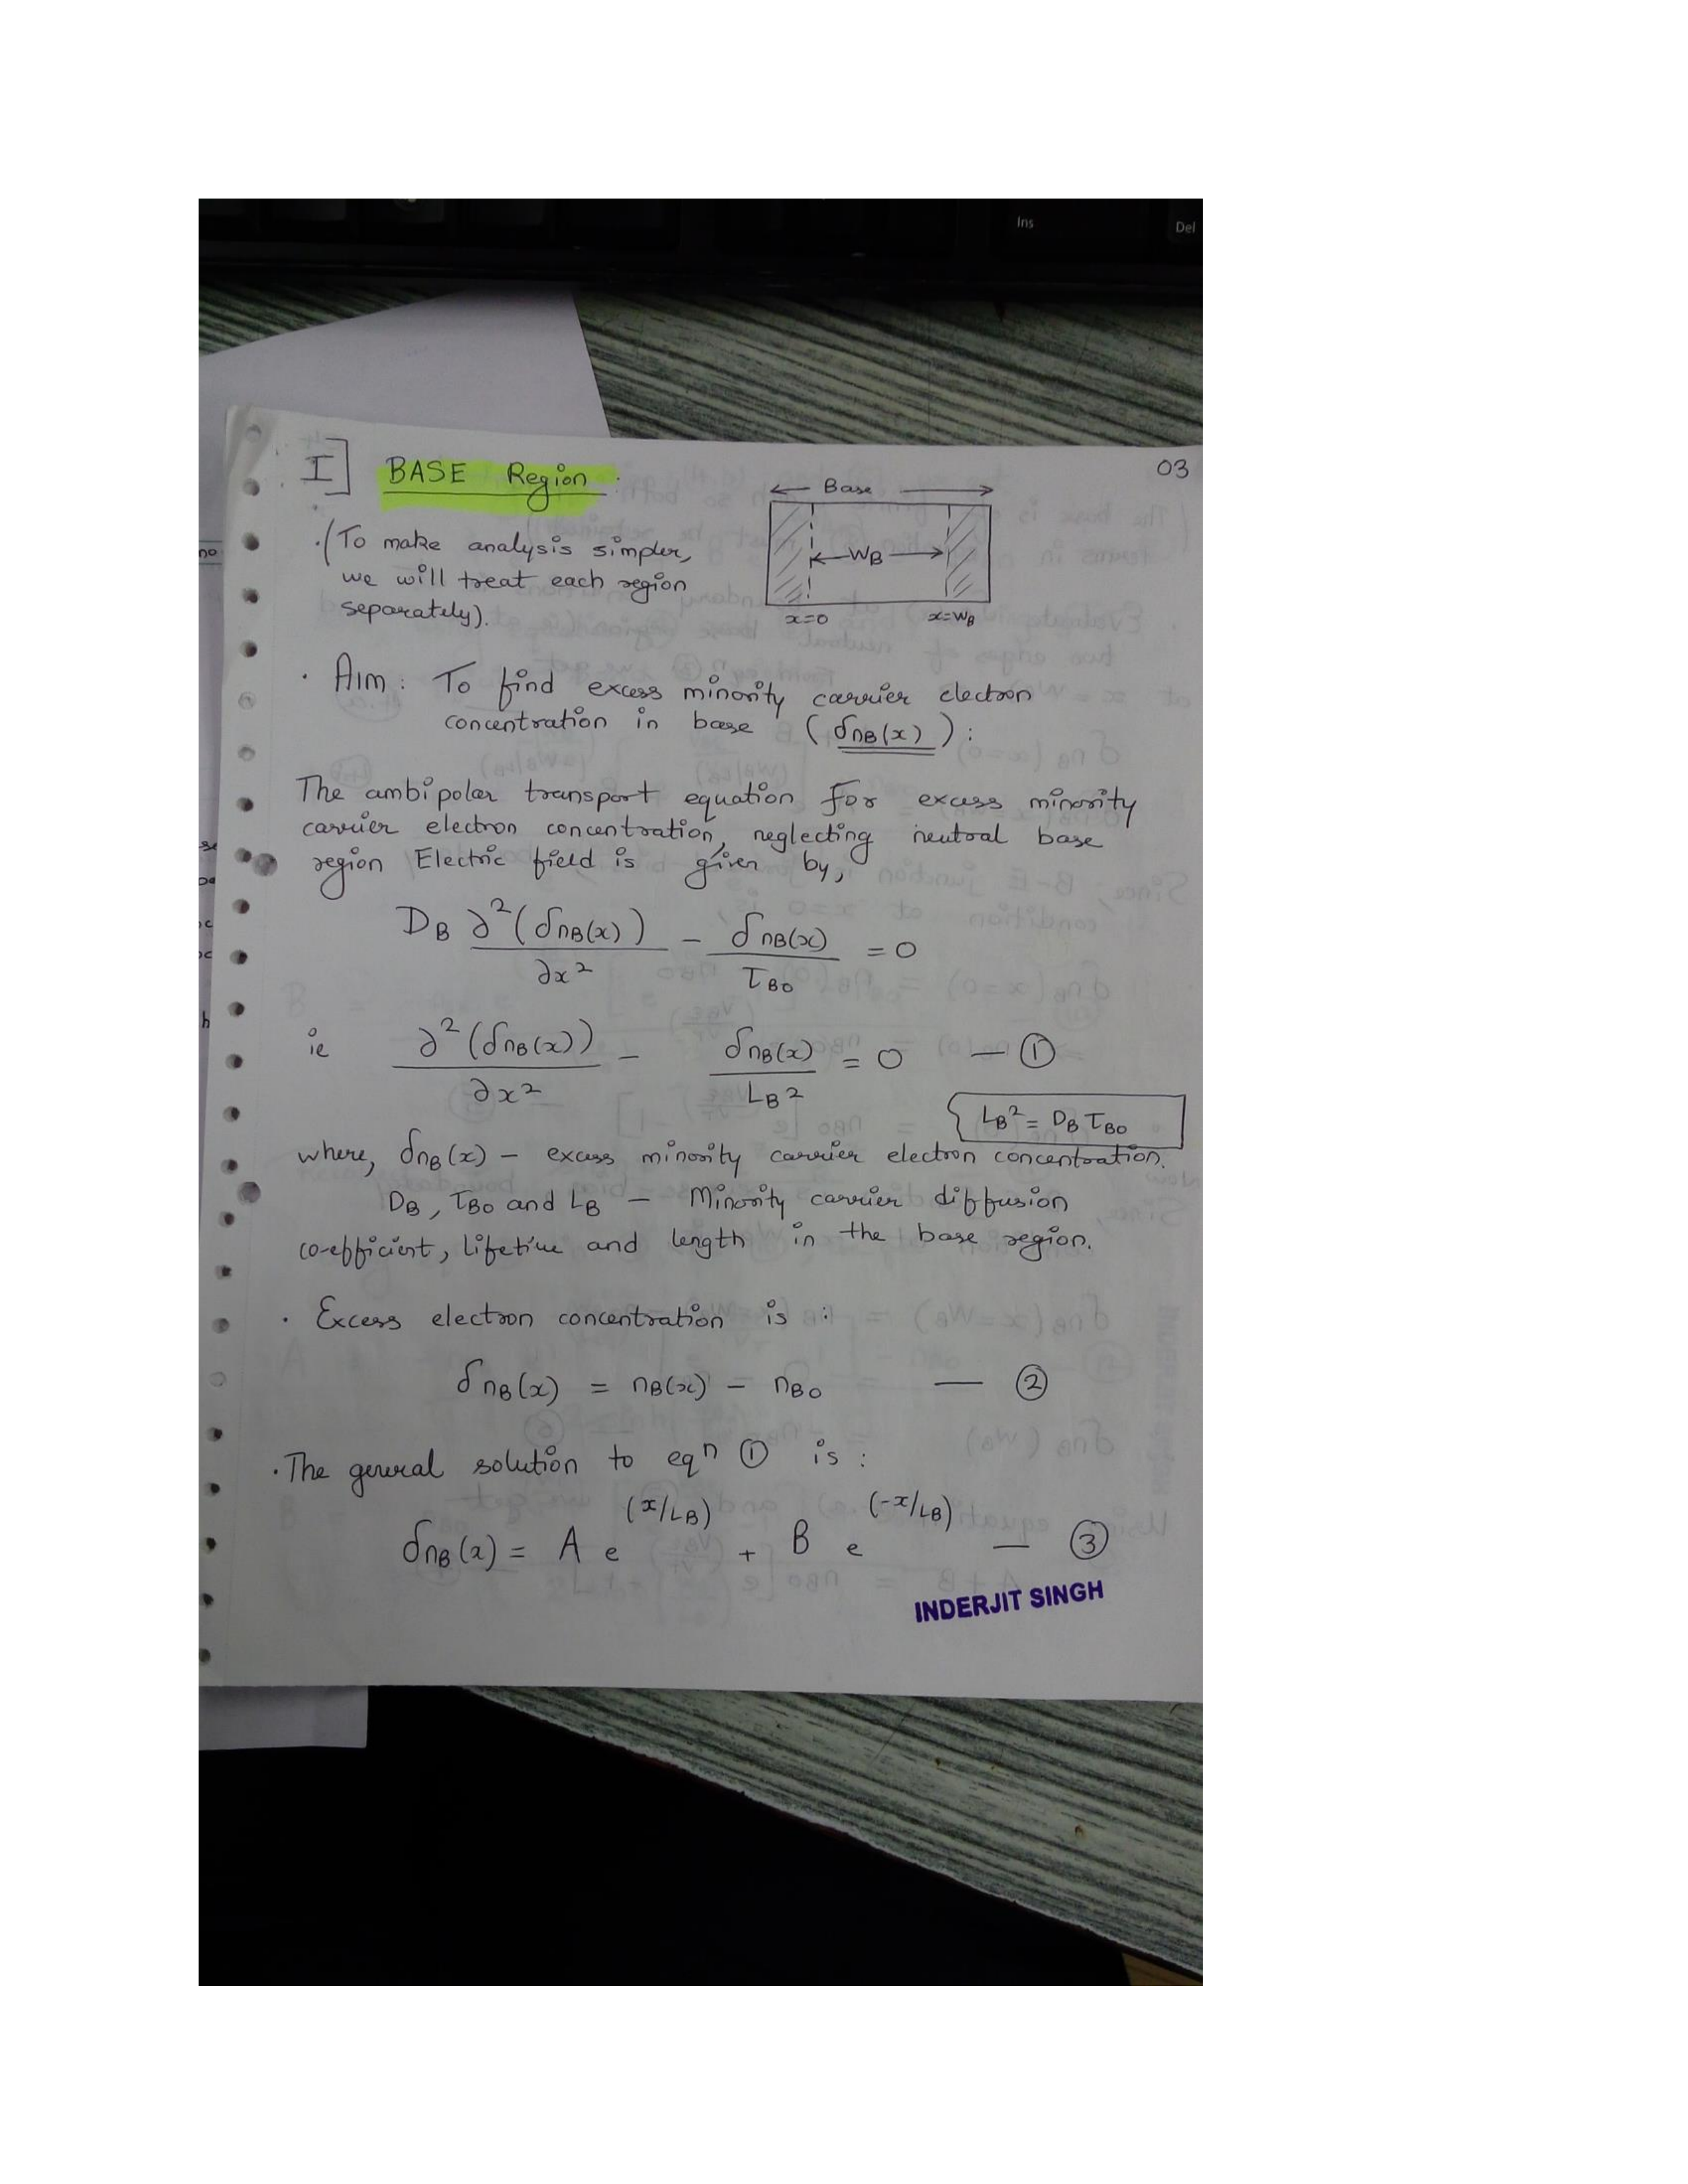 Ins
Del
03
I] BASE Region
Base
(To make analysis simpler,
we will treat each region
separately).
WB
x=0
x=WB
· Aim : To find excess minority carrier electron
concentration in base (δnB(x)) :
The ambipolar transport equation for excess minority
carrier electron concentration, neglecting neutral base
region Electric field is given by,
DB ∂²(δnB(x))/∂x² − δnB(x)/τB0 = 0
ie ∂²(δnB(x))/∂x² − δnB(x)/LB² = 0 — ①
LB² = DB τB0
where, δnB(x) – excess minority carrier electron concentration.
DB, τB0 and LB – Minority carrier diffusion
co-efficient, lifetime and length in the base region.
· Excess electron concentration is :
δnB(x) = nB(x) − nB0 — ②
· The general solution to eqⁿ ① is :
δnB(x) = A e^(x/LB) + B e^(-x/LB) — ③
INDERJIT SINGH